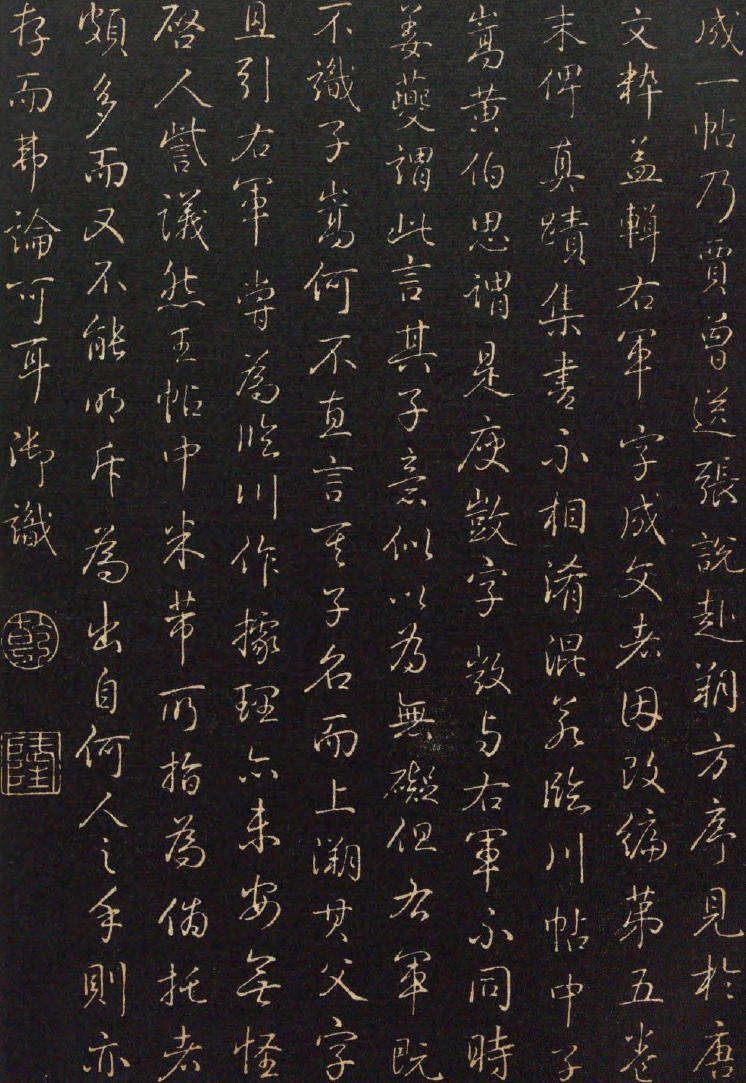 成一帖乃賈曾送張說赴朔方序見於唐
文粹蓋輯右軍字成文者因改編第五卷
末俾真蹟集書不相淆混若臨川帖中子
嵩黃伯思謂是庾敳字敳與右軍不同時
姜夔謂此言其子意似以為無礙但右軍既
不識子嵩何不直言其子名而上溯其父字
且引右軍嘗為臨川作據理亦未安無怪
啓人訾議然王帖中米芾所指為偽托者
頗多而又不能明斥為出自何人之手則亦
存而弗論可耳御識
乾
隆